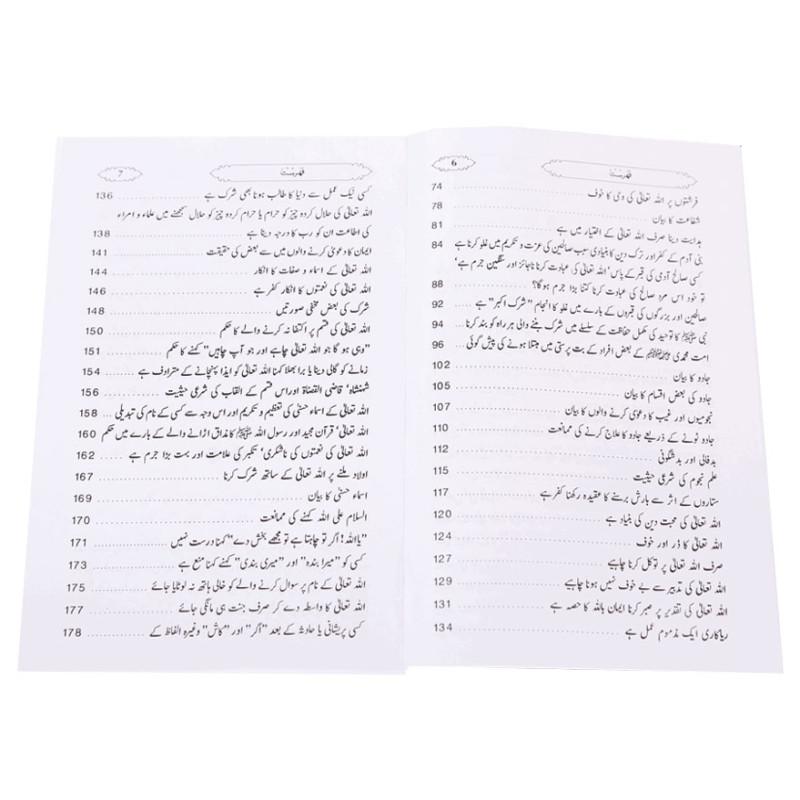 6
فہرست
فرشتوں پر اللہ تعالیٰ کی وحی کا خوف ........ 74
شفاعت کا بیان ........ 78
ہدایت دینا صرف اللہ تعالیٰ کے اختیار میں ہے ........ 81
بنی آدم کے کفر اور ترک دین کا بنیادی سبب صالحین کی عزت و تکریم میں غلو کرنا ہے 84
کسی صالح آدمی کی قبر کے پاس' اللہ تعالیٰ کی عبادت کرنا ناجائز اور سنگین جرم ہے'
تو خود اس مرد صالح کی عبادت کرنا کتنا بڑا جرم ہو گا؟ ........ 88
صالحین اور بزرگوں کی قبروں کے بارے میں غلو کا انجام "شرک اکبر" ہے ... 92
نبی ﷺ کا توحید کی مکمل حفاظت کے سلسلے میں شرک بننے والی ہر راہ کو بند کرنا ... 94
امت محمدی ﷺ کے بعض افراد کے بت پرستی میں مبتلا ہونے کی پیش گوئی ... 96
جادو کا بیان ........ 102
جادو کی بعض اقسام کا بیان ........ 105
نجومیوں اور غیب کا دعویٰ کرنے والوں کا بیان ........ 107
جادو ٹونے کے ذریعے جادو کا علاج کرنے کی ممانعت ........ 110
بدفالی اور بدشگونی ........ 112
علم نجوم کی شرعی حیثیت ........ 115
ستاروں کے اثر سے بارش برسنے کا عقیدہ رکھنا کفر ہے ........ 117
اللہ تعالیٰ کی محبت دین کی بنیاد ہے ........ 120
اللہ تعالیٰ کا ڈر اور خوف ........ 124
صرف اللہ تعالیٰ پر توکل کرنا چاہیے ........ 127
اللہ تعالیٰ کی تدبیر سے بے خوف نہیں ہونا چاہیے ........ 129
اللہ تعالیٰ کی تقدیر پر صبر کرنا ایمان باللہ کا حصہ ہے ........ 131
ریاکاری ایک مذموم عمل ہے ........ 134
فہرست
7
کسی نیک عمل سے دنیا کا طالب ہونا بھی شرک ہے ........ 136
اللہ تعالیٰ کی حلال کردہ چیز کو حرام یا حرام کردہ چیز کو حلال سمجھنے میں علماء و امراء
کی اطاعت ان کو رب کا درجہ دینا ہے ........ 138
ایمان کا دعویٰ کرنے والوں میں سے بعض کی حقیقت ........ 141
اللہ تعالیٰ کے اسماء و صفات کا انکار ........ 144
اللہ تعالیٰ کی نعمتوں کا انکار کفر ہے ........ 146
شرک کی بعض مخفی صورتیں ........ 148
اللہ تعالیٰ کی قسم پر اکتفا نہ کرنے والے کا حکم ........ 150
"وہی ہو گا جو اللہ تعالیٰ چاہے اور جو آپ چاہیں" کہنے کا حکم ........ 151
زمانے کو گالی دینا یا برا بھلا کہنا اللہ تعالیٰ کو ایذا پہنچانے کے مترادف ہے ... 154
شہنشاہ' قاضی القضاۃ اور اس قسم کے القاب کی شرعی حیثیت ........ 156
اللہ تعالیٰ کے اسماء حسنیٰ کی تعظیم و تکریم اور اس وجہ سے کسی کے نام کی تبدیلی .. 158
اللہ تعالیٰ' قرآن مجید اور رسول اللہ ﷺ کا مذاق اڑانے والے کے بارے میں حکم 160
اللہ تعالیٰ کی نعمتوں کی ناشکری' تکبر کی علامت اور بہت بڑا جرم ہے ... 162
اولاد ملنے پر اللہ تعالیٰ کے ساتھ شرک کرنا ........ 167
اسماء حسنیٰ کا بیان ........ 169
السلام علی اللہ کہنے کی ممانعت ........ 170
"یا اللہ! اگر تو چاہتا ہے تو مجھے بخش دے" کہنا درست نہیں ........ 171
کسی کو "میرا بندہ" اور "میری بندی" کہنے کہنا منع ہے ........ 173
اللہ تعالیٰ کے نام پر سوال کرنے والے کو خالی ہاتھ نہ لوٹایا جائے ........ 175
اللہ تعالیٰ کا واسطہ دے کر صرف جنت ہی مانگی جائے ........ 177
کسی پریشانی یا حادثہ کے بعد "اگر" اور "کاش" وغیرہ الفاظ کے ........ 178